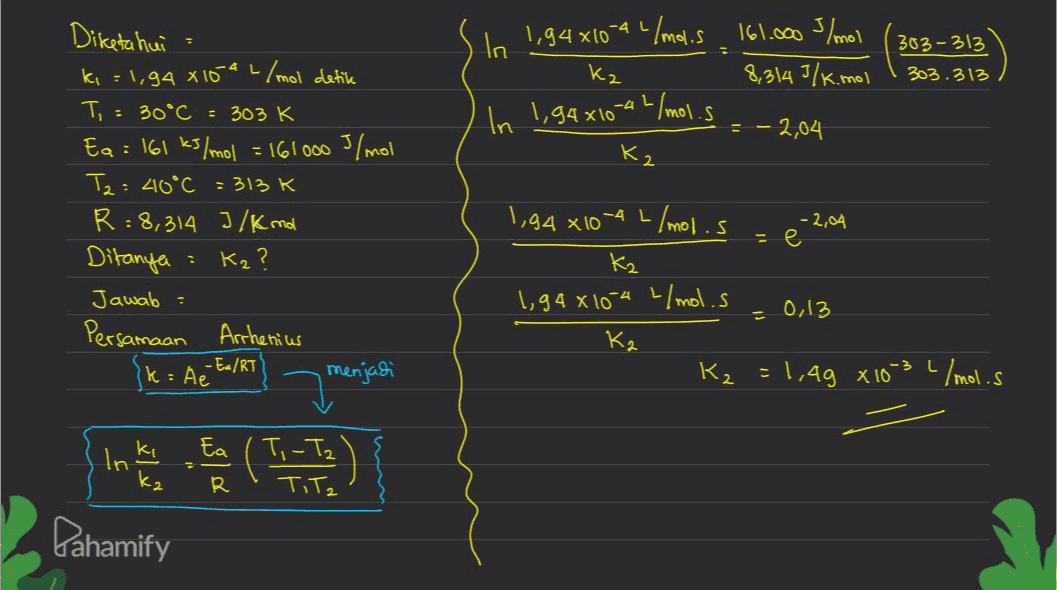 Diketahui =
k₁ = 1,94 x 10⁻⁴ L/mol detik
T₁ = 30°C = 303 K
Ea = 161 kJ/mol = 161000 J/mol
T₂ = 40°C = 313 K
R = 8,314 J/K mol
Ditanya = K₂?
Jawab =
Persamaan Arrhenius
k = Ae^(-Ea/RT) menjadi
ln k₁/k₂ = Ea/R (T₁-T₂ / T₁T₂)
ln 1,94 x10⁻⁴ L/mol.s / K₂ = 161.000 J/mol / 8,314 J/K.mol (303-313 / 303.313)
ln 1,94 x10⁻⁴ L/mol.s / K₂ = -2,04
1,94 x10⁻⁴ L/mol.s / K₂ = e^(-2,04)
1,94 x 10⁻⁴ L/mol.s / K₂ = 0,13
K₂ = 1,49 x10⁻³ L/mol.s
Pahamify